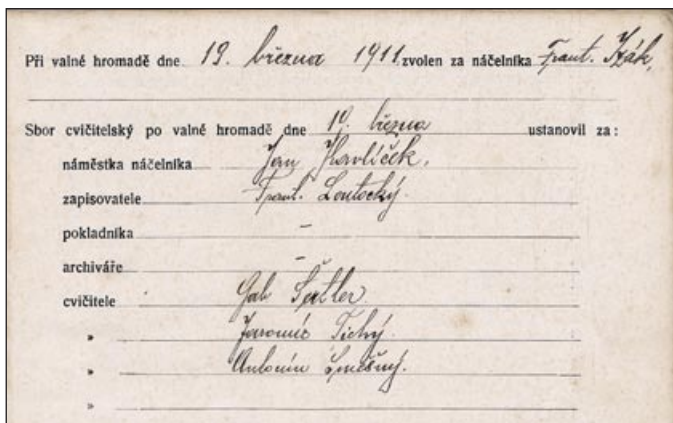 Při valné hromadě dne 19. března 1911 zvolen za náčelníka Frant. Žák,
Sbor cvičitelský po valné hromadě dne 19. března ustanovil za:
náměstka náčelníka Jan Havlíček,
zapisovatele Frant. Loutocký.
pokladníka –
archiváře –
cvičitele Gab
» Jaromír Tichý.
» Antonín
»